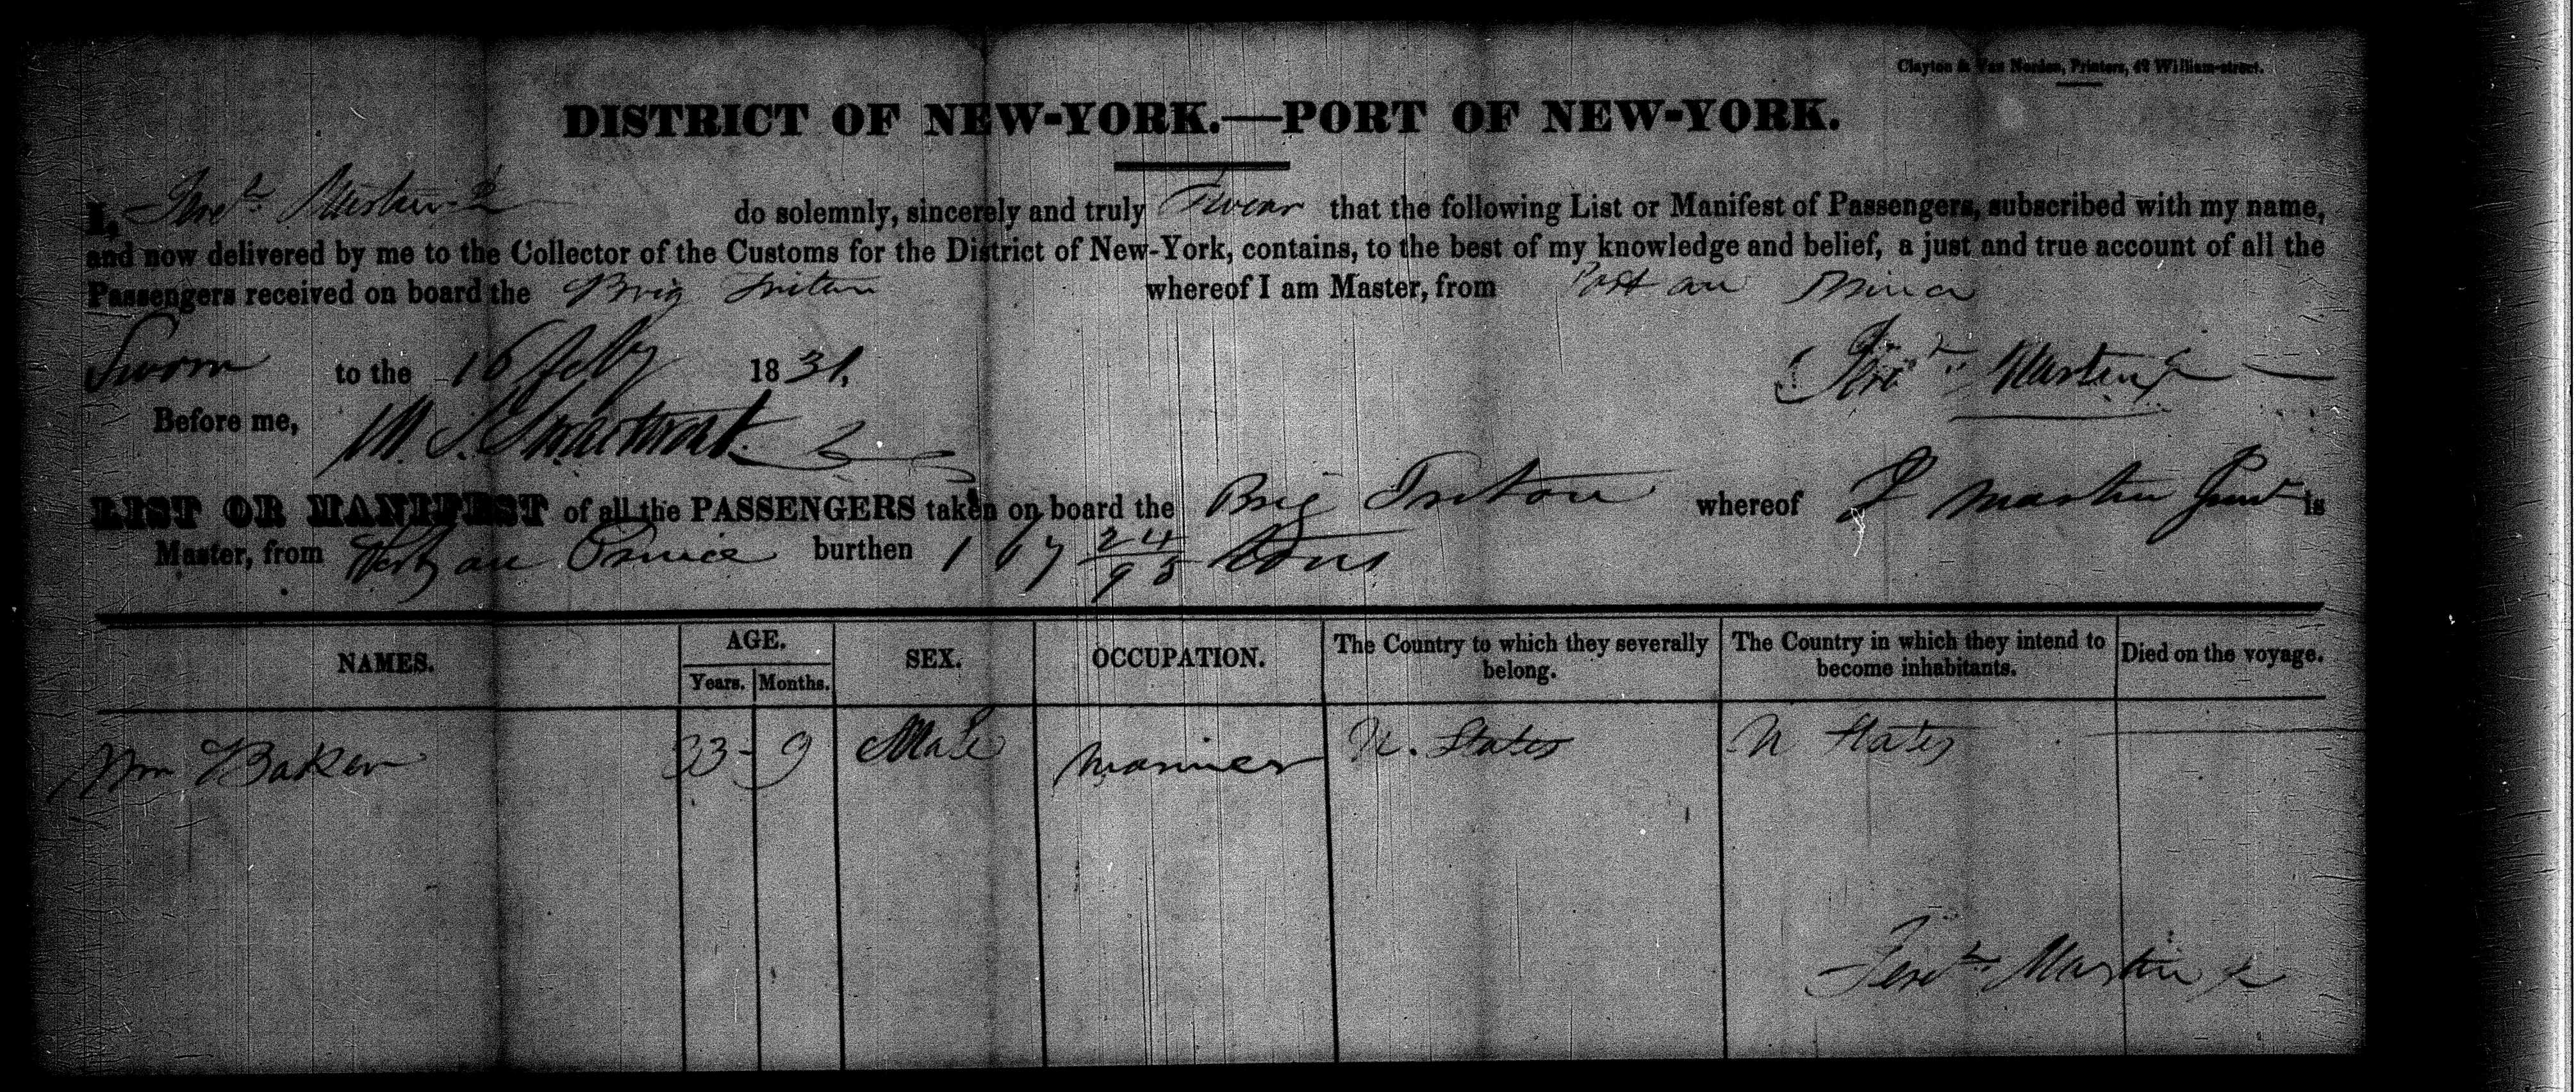 Clayton & Van Norden, Printers, 42 William-street.
DISTRICT OF NEW-YORK.—PORT OF NEW-YORK.
I, Jere^h Martin Jr do solemnly, sincerely and truly Swear that the following List or Manifest of Passengers, subscribed with my name,
and now delivered by me to the Collector of the Customs for the District of New-York, contains, to the best of my knowledge and belief, a just and true account of all the
Passengers received on board the Brig Triton whereof I am Master, from Port au Prince
Sworn to the 16 Feby 1831,
Jere^h Martin Jr
Before me, M. S. Swartwout
LIST OR MANIFEST of all the PASSENGERS taken on board the Brig Triton whereof J Martin Jun^r is
Master, from Port au Prince burthen 167 24/95 tons
NAMES. AGE. SEX. OCCUPATION. The Country to which they severally belong. The Country in which they intend to become inhabitants. Died on the voyage.
Years. Months.
Wm Baker 33 - 9 Male Mariner U. States U States
Jere^h Martin Jr